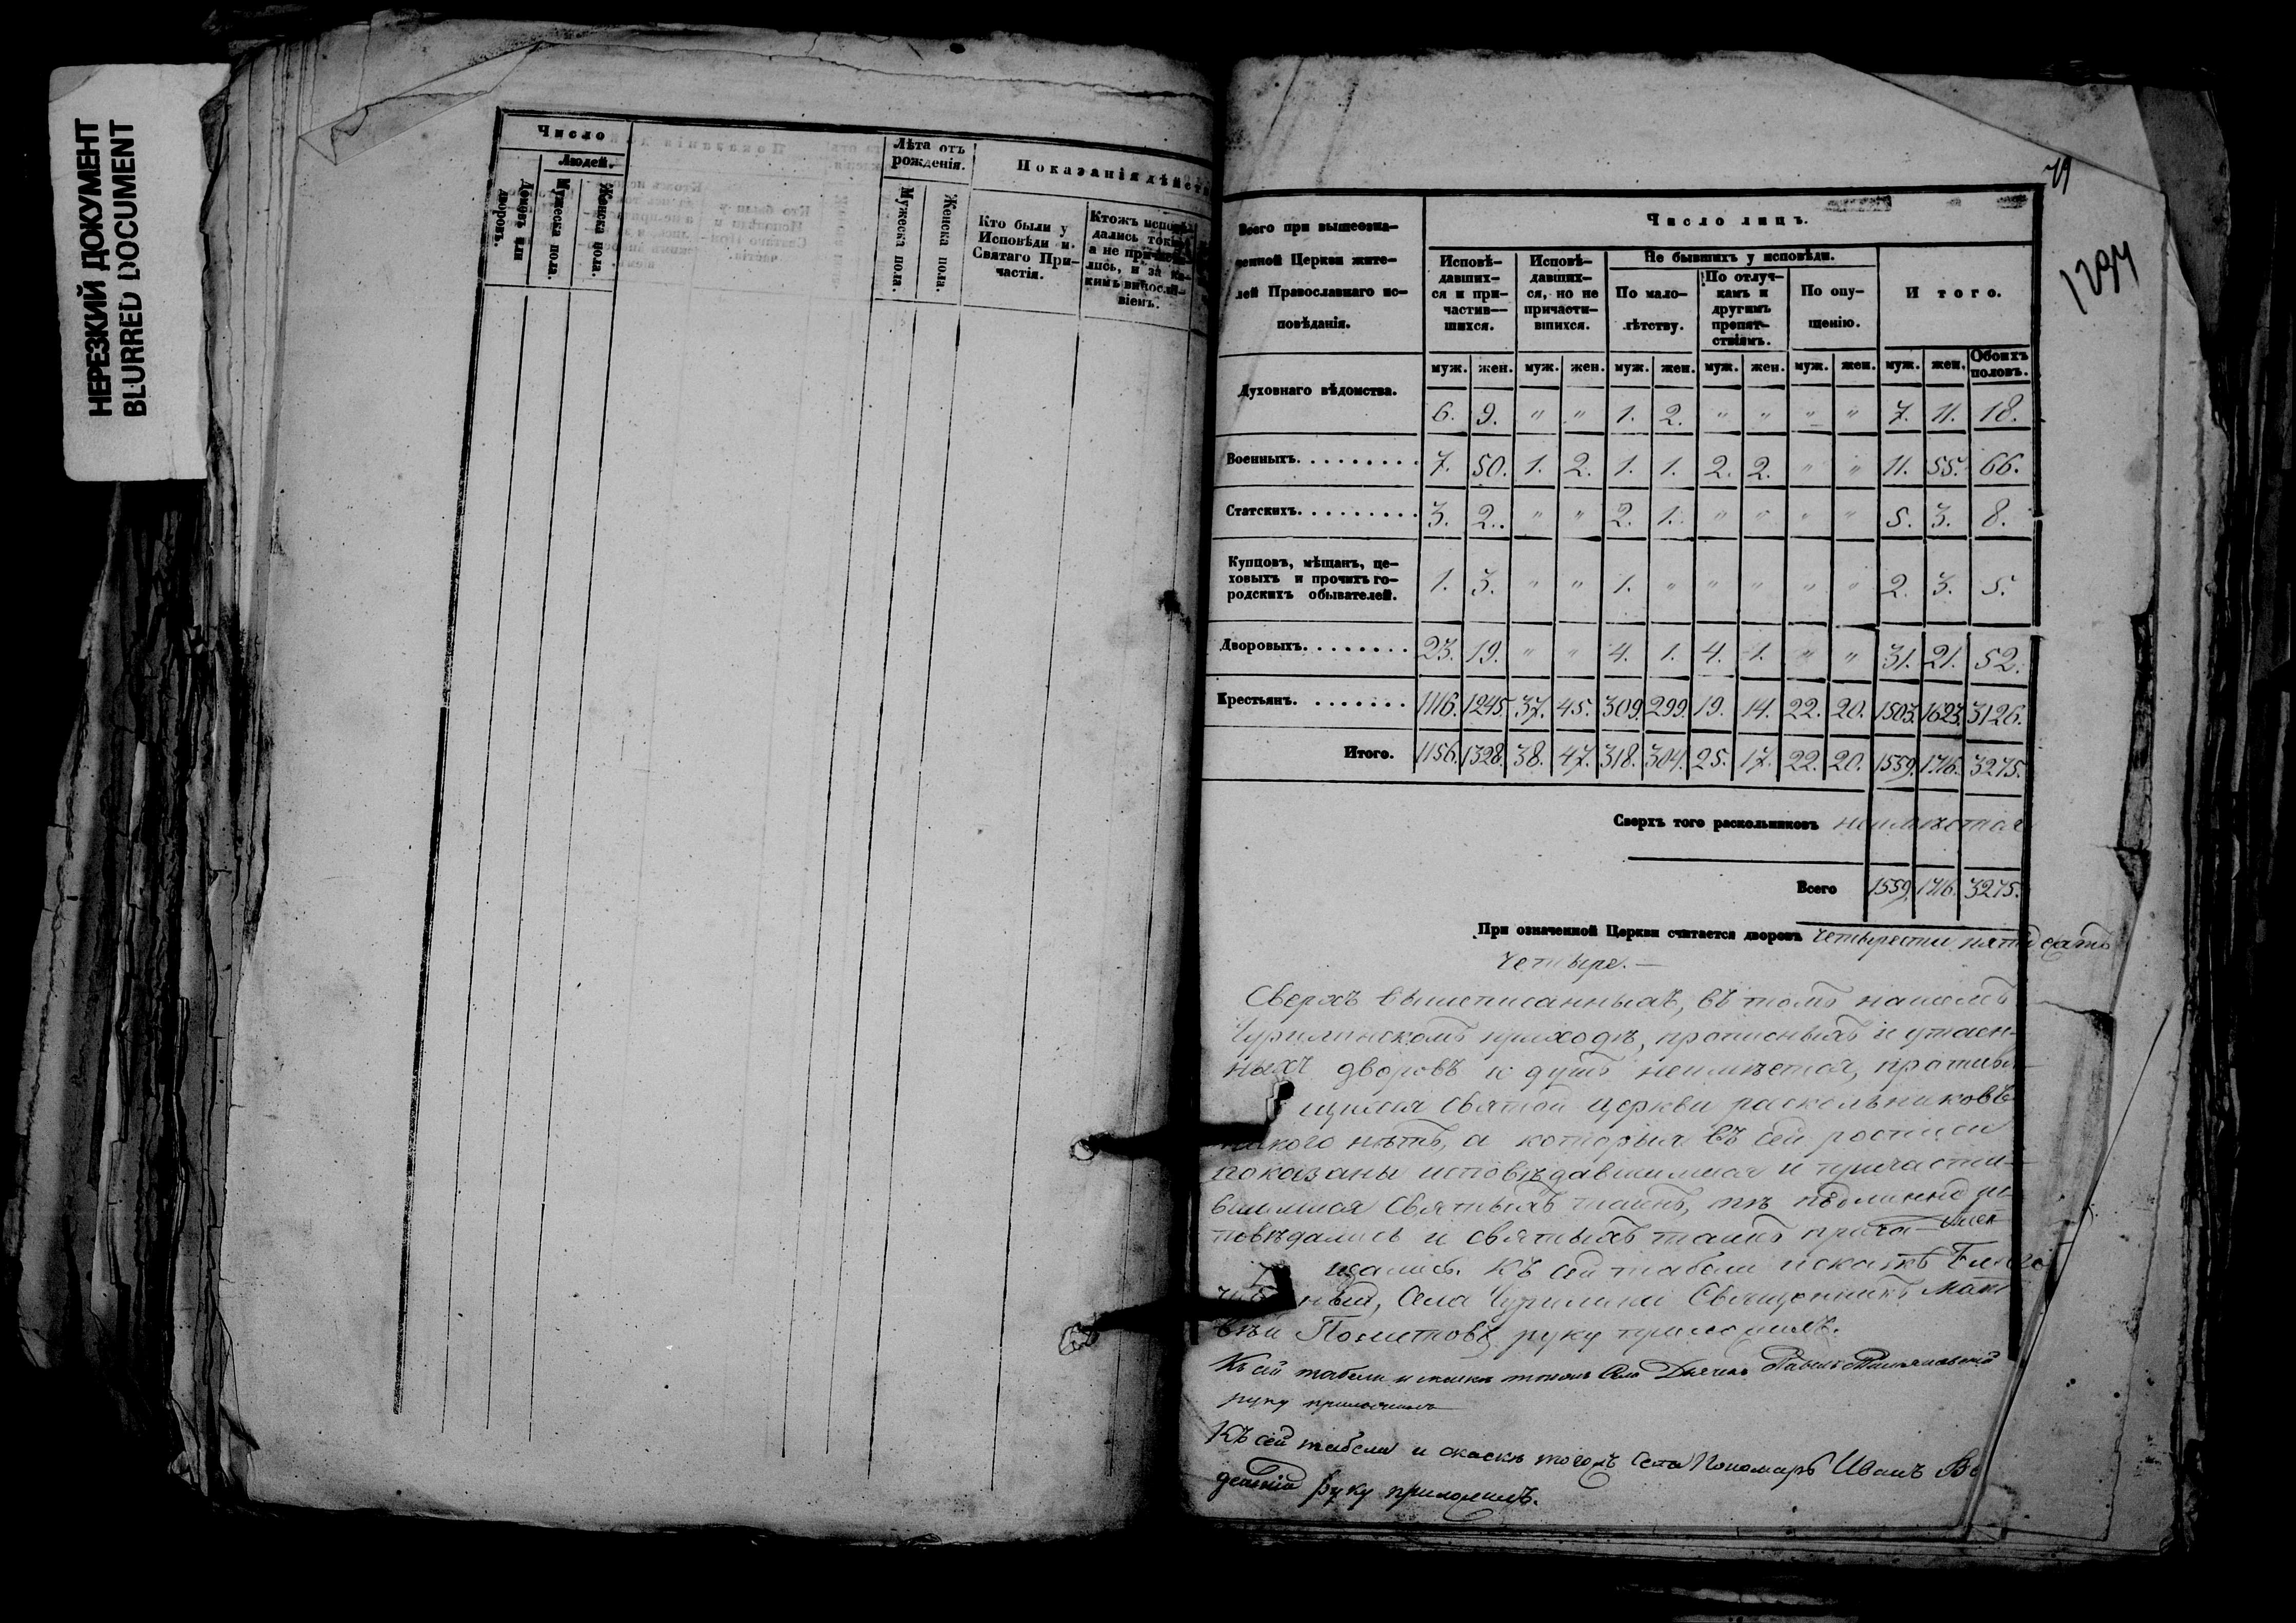 НЕРЕЗКИЙ ДОКУМЕНТ
BLURRED DOCUMENT
Число
Людей.
Домовъ или дворовъ.
Мужеска пола.
Женска пола.
Лѣта отъ рожденія.
Мужеска пола.
Женска пола.
Показанія дѣйст
Кто были у Исповѣди и Святаго Причастія.
Ктожъ исповѣдались токмо а не причасти-лись, и за ка-кимъ винослі-віемъ.
1294
Всего при вышеозна-
ченной Церкви жите-
лей Православнаго ис-
повѣданія.
Число лицъ.
Исповѣ-давших-ся и при-частив-шихся.
Исповѣ-давших-ся, но не причасти-вшихся.
Не бывшихъ у исповѣди.
По мало-лѣтству.
По отлуч-камъ и другимъ препят-ствіямъ.
По опу-щенію.
Итого.
муж. жен. муж. жен. муж. жен. муж. жен. муж. жен. муж. жен. Обоихъ половъ.
Духовнаго вѣдомства. 6. 9. " " 1. 2. " " " " 7. 11. 18.
Военныхъ. 7. 50. 1. 2. 1. 1. 2. 2. " " 11. 55. 66.
Статскихъ. 3. 2. " " 2. 1. " " " " 5. 3. 8.
Купцовъ, мѣщанъ, це-
ховыхъ и прочихъ го-
родскихъ обывателей. 1. 3. " " 1. " " " " " 2. 3. 5.
Дворовыхъ. 23. 19. " " 4. 1. 4. 1. " " 31. 21. 52.
Крестьянъ. 1116. 1245. 37. 45. 309. 299. 19. 14. 22. 20. 1503. 1623. 3126.
Итого. 1156. 1328. 38. 47. 318. 304. 25. 17. 22. 20. 1559. 1716. 3275.
Сверхъ того раскольниковъ неимѣется
Всего 1559. 1716. 3275.
При означенной Церкви считается дворовъ четыреста пятдесятъ
четыре. —
Сверхъ вышеписанныхъ, въ томъ нашемъ
Чурилинскомъ приходѣ, прописныхъ и утаен-
ныхъ дворовъ и душъ неимѣется, противя-
щихся Святой церкви раскольниковъ
никого нѣтъ, а которыя въ сей росписи
показаны исповѣдавшимися и причасти-
вшимися Святыхъ таинъ, тѣ подлинно ис-
повѣдались и святыхъ таинъ прича-
щались. Къ сей табели и сказкѣ
Села Чурилина Священникъ Мат
вѣй руку приложилъ.
Къ сей табели и сказкѣ тогожъ Села Дьячекъ Павелъ
руку приложилъ
Къ сей табели и сказкѣ тогожъ Села Пономарь Иванъ
руку приложилъ.